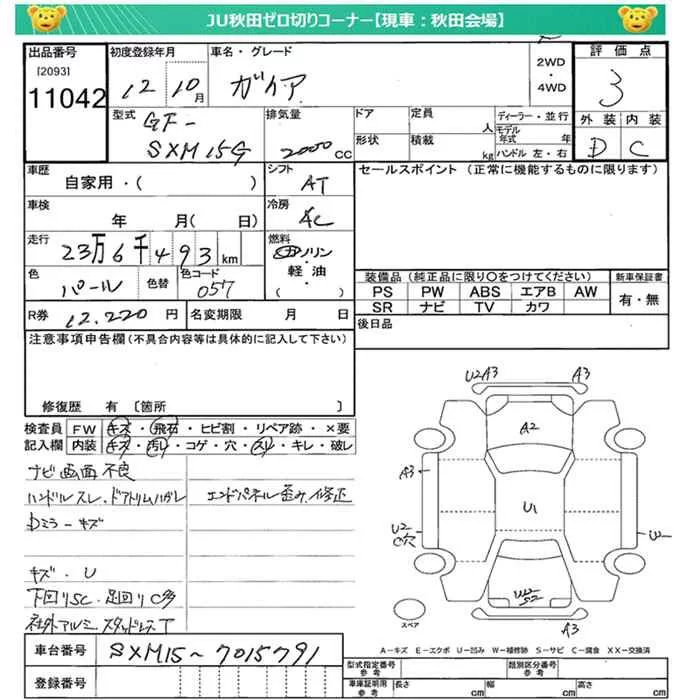 JU秋田ゼロ切りコーナー【現車：秋田会場】
出品番号
[2093]
11042
初度登録年月
12 10月
車名・グレード
ガイア
2WD
・
4WD
評価点
3
外装 内装
D C
型式 GF-
SXM15G
排気量
2000cc
ドア
形状
定員 人
積載 kg
ディーラー・並行
モデル年式 年
ハンドル 左・右
車歴
自家用・( )
シフト
AT
セールスポイント (正常に機能するものに限ります)
車検
年 月( 日)
冷房
AC
走行
23万6千493km
燃料
ガソリン
・
軽油
・
( )
色
パール
色替
色コード
057
装備品 (純正品に限り○をつけてください)
新車保証書
PS PW ABS エアB AW
SR ナビ TV カワ
有・無
R券 12.220円
名変期限 月 日
後日品
注意事項申告欄(不具合内容等は具体的に記入して下さい)
修復歴 有 〔箇所 〕
検査員 FW キズ・飛石・ヒビ割・リペア跡・×要
記入欄 内装 キズ・汚れ・コゲ・穴・スレ・キレ・破レ
ナビ画面不良
ハンドルスレ.ドアトリムハガレ
エンドパネル歪み.修正
Dミラーキズ
キズ.U
下回りSC.足回りC多
社外アルミスタッドレスT
U2 A3
A3
A2
A3
U1
U2
C穴
W
A3
スペア
A－キズ E－エクボ U－凹み W－補修跡 S－サビ C－腐食 XX－交換済
車台番号 SXM15-7015791
登録番号
型式指定番号
参考
類別区分番号
参考
車庫証明用
参考
長さ cm
幅 cm
高さ cm